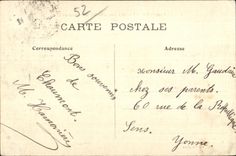 52
CARTE POSTALE
Correspondance
Adresse
Bons souvenirs
de
Chaumont.
M.
Monsieur M.
chez ses parents.
60 rue de la République
Sens.
Yonne.